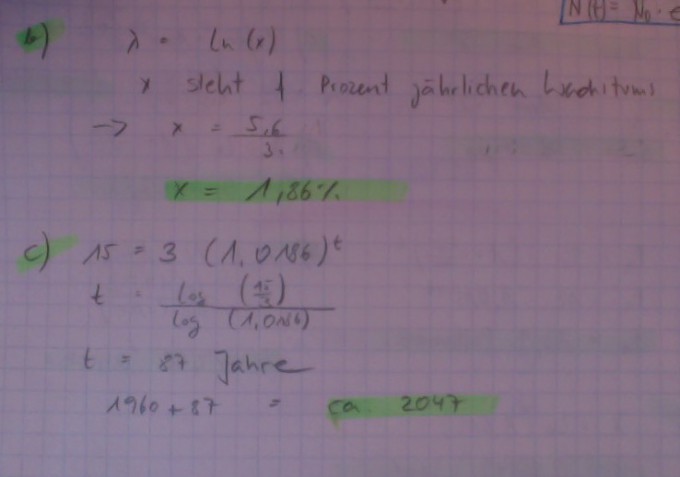 N(t) = N₀ · e
b) λ = ln (x)
x steht f Prozent jährlichen Wachstums
→ x = 5,6 / 3
x = 1,86%
c) 15 = 3 (1,0186)^t
t = log (15/3) / log (1,0186)
t = 87 Jahre
1960 + 87 = ca. 2047